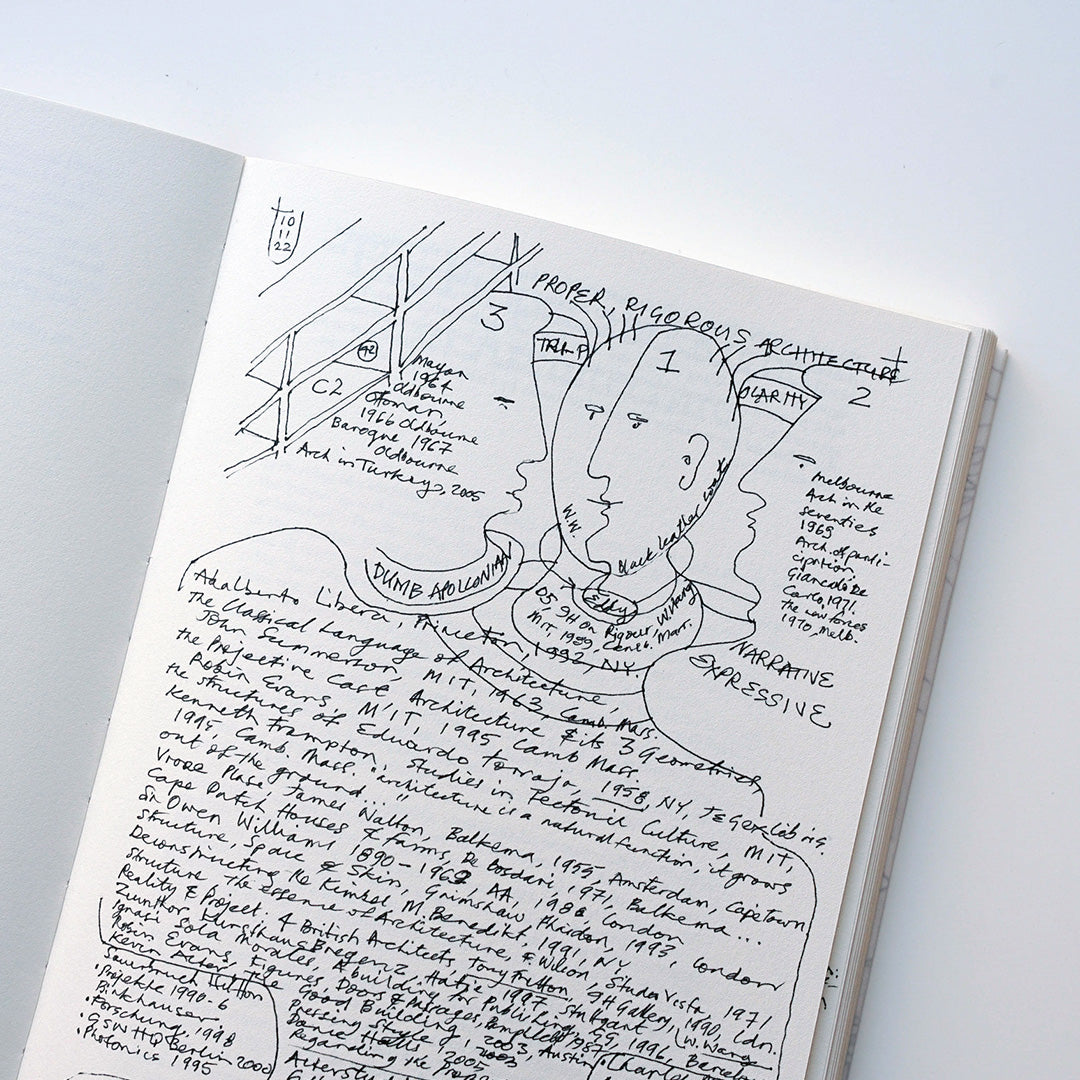 10
11
22
PROPER, RIGOROUS ARCHITECTURE
3
1
2
42
C2
Mayan
1964
Oldbourne
Ottoman,
1966 Oldbourne
Baroque 1967
Oldbourne
Arch in Turkey, 2005
W.W.
black leather coat
Melbourne
Arch in the
seventies
1969
Arch. of parti-
cipation,
Giancarlo De
Carlo, 1971.
the new forces
1970, Melb.
DUMB APOLLONIAN
Eddy
05 9H On Rigour, W.Wang
MIT, 1989, Camb. Mass.
NARRATIVE
EXPRESSIVE
Adalberto Libera, Princeton, 1992, NY.
The Classical Language of Architecture,
John Summerson, MIT, 1963, Camb Mass.
the Projective Cast Architecture & its 3 Geometries,
Robin Evans, MIT, 1995 Camb Mass.
the structures of Eduardo Torroja, 1958, NY,
Kenneth Frampton, Studies in Tectonic Culture, MIT,
1995, Camb. Mass. "architecture is a natural function, it grows
out of the ground..."
Vroee Plase, James Walton, Balkema, 1955, Amsterdam, Cape Town
Cape Dutch Houses & farms, De Bosdari, 1971, Balkema ...
Sir Owen Williams 1890 - 1969, AA, 1986, London
structure, Space & Skin, Grimshaw, Phaidon, 1993, London
Deconstructing the Kimbell, M. Benedikt, 1991, NY.
structure the essence of Architecture, F. Wilson, Studio Vista, 1971,
Reality & Project. 4 British Architects, Tony Fretton, 9H Gallery, 1990, Ldn.
Zumthor Kunsthaus Bregenz, Hatje 1997 Stuttgart W. Wang
Ignasi Sola Morales, A building for Publishing, GG, 1996, Barcelona
Robin Evans, Figures, Doors & Passages,
Kevin Alter, The Good Building, 2003, Austin
Sauerbruch Hutton
• Projekte 1990-6
Birkhauser
• Forschung, 1998
• GSW HQ Berlin 2000
• Photonics 1995
Pressing
Daniel 2005
Regarding the